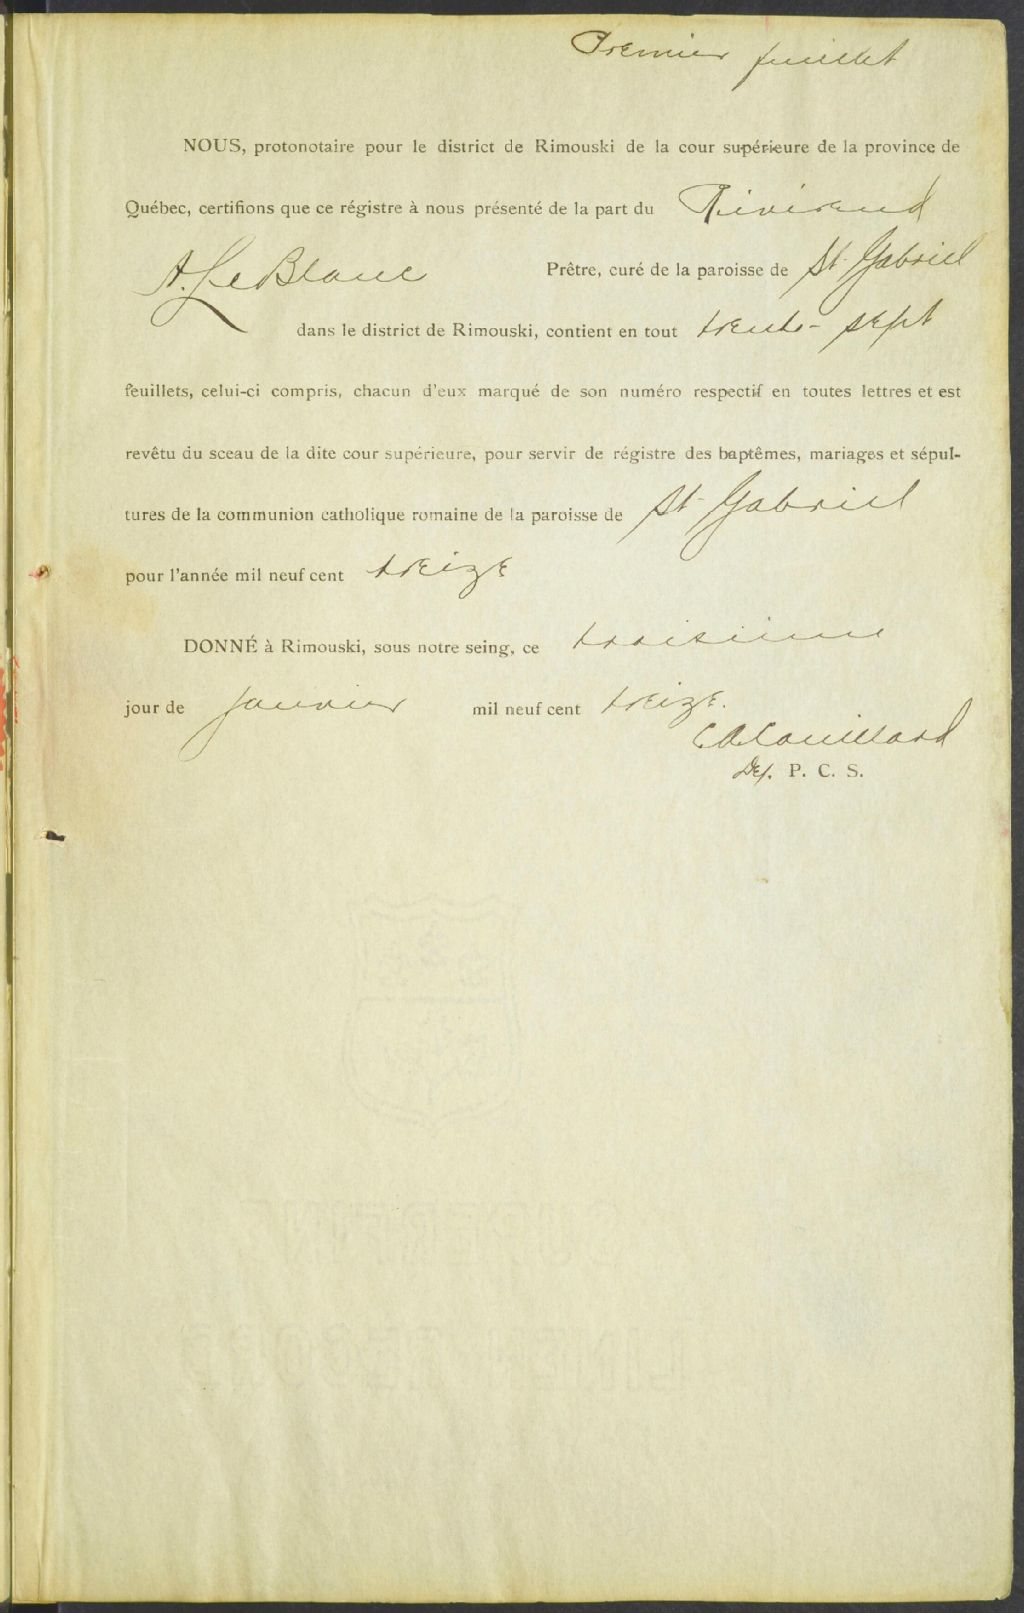 Premier feuillet
NOUS, protonotaire pour le district de Rimouski de la cour supérieure de la province de
Québec, certifions que ce régistre à nous présenté de la part du Révérend
A. LeBlanc Prêtre, curé de la paroisse de St Gabriel
dans le district de Rimouski, contient en tout trente-sept
feuillets, celui-ci compris, chacun d'eux marqué de son numéro respectif en toutes lettres et est
revêtu du sceau de la dite cour supérieure, pour servir de régistre des baptêmes, mariages et sépul-
tures de la communion catholique romaine de la paroisse de St Gabriel
pour l'année mil neuf cent treize
DONNÉ à Rimouski, sous notre seing, ce troisième
jour de janvier mil neuf cent treize.
Couillard
Dep. P. C. S.
SUPERFINE
LINEN RECORD